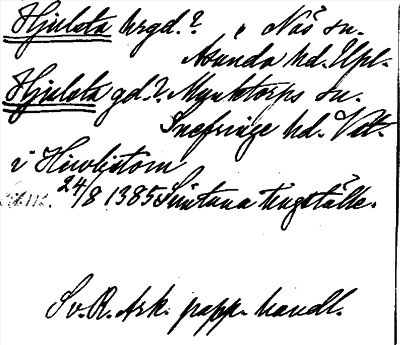 Hjulsta hrgd.? i Näs sn.
Asunda hd. Upl.
Hjulsta gd.? Munktorps sn.
Snefringe hd. Vstm.
i Hiwlistom
24/8 1385 Simtuna tingställe.
Sv. R. Ark. papp. handl.